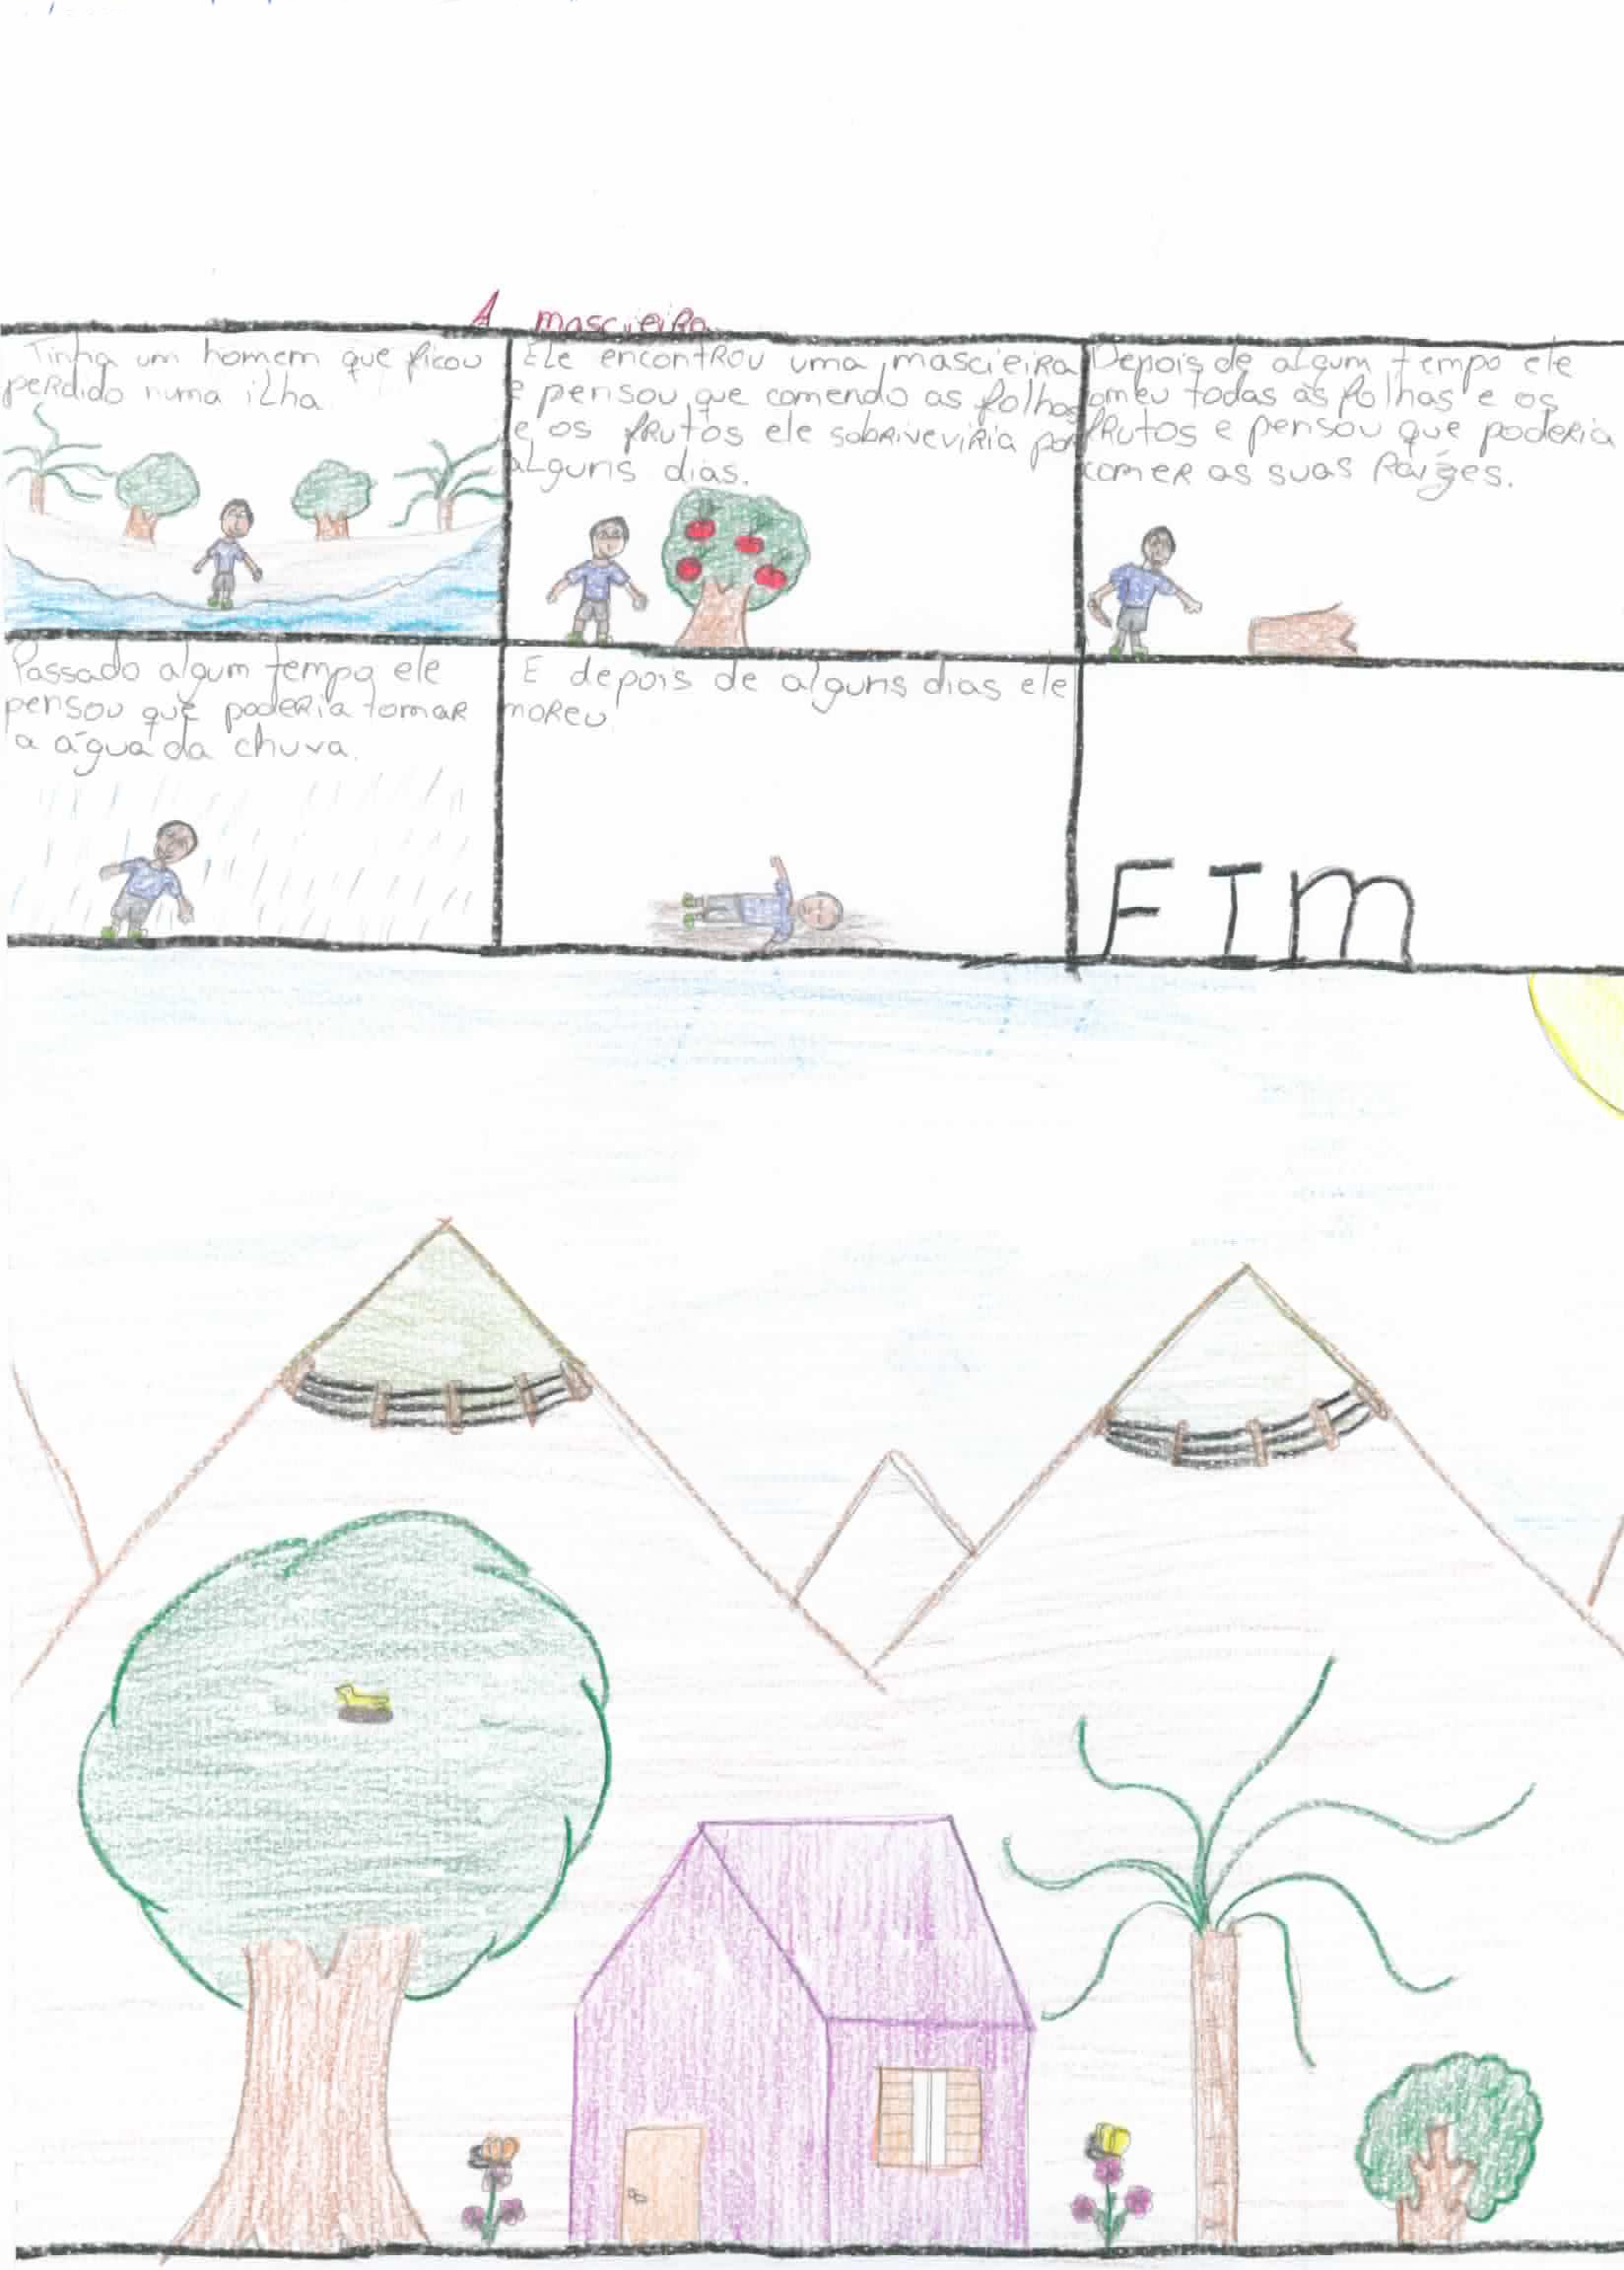 A mascieira
Tinha um homem que ficou
perdido numa ilha.
Ele encontrou uma mascieira
e pensou que comendo as folhas
e os frutos ele sobriveviria por
alguns dias.
Depois de algum tempo ele
comeu todas as folhas e os
frutos e pensou que poderia
comer as suas raízes.
Passado algum tempo ele
pensou que poderia tomar
a água da chuva.
E depois de alguns dias ele
moreu
FIM